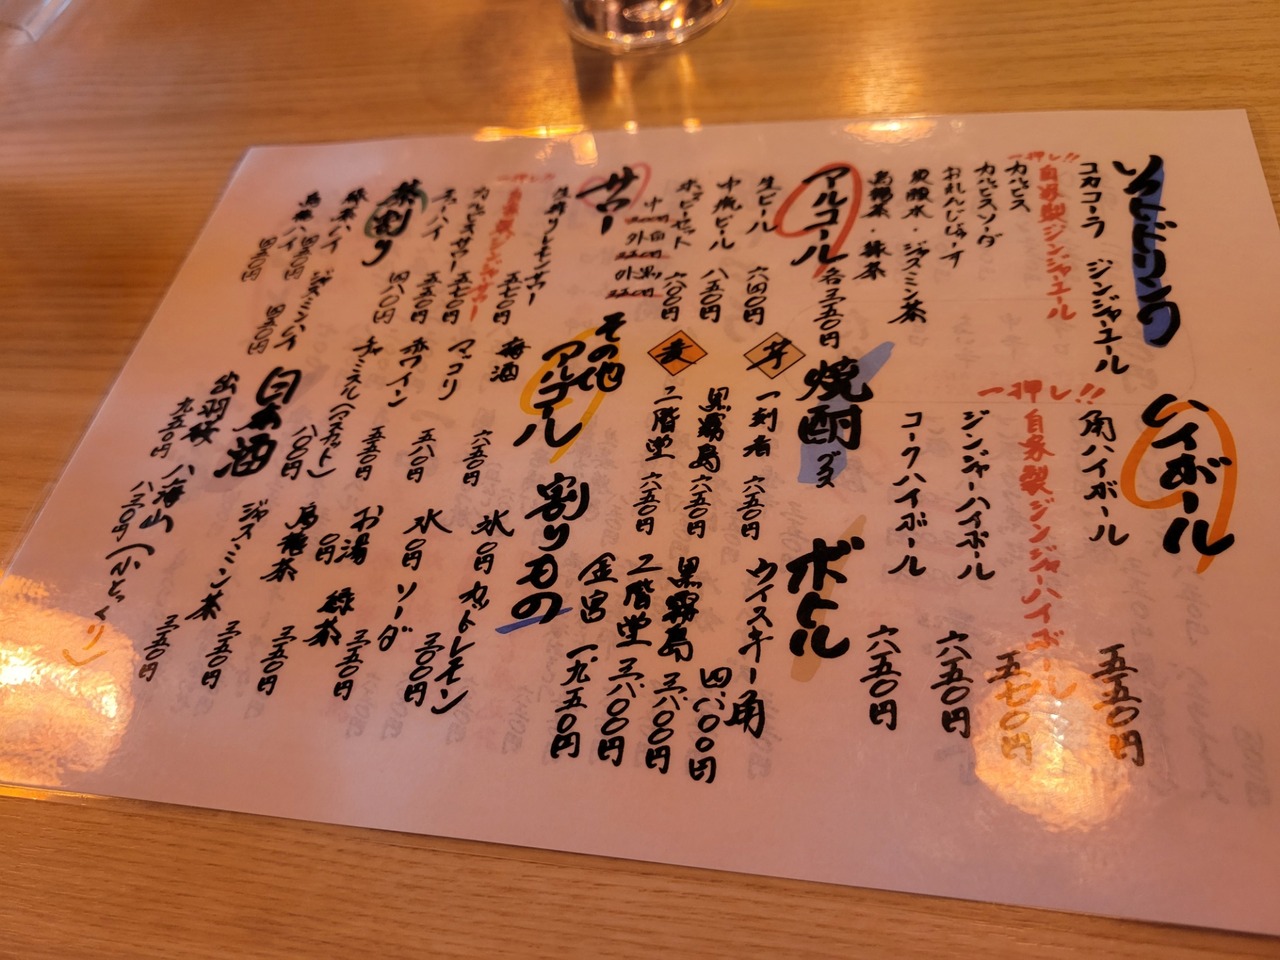 ソフトドリンク
コカコーラ ジンジャエール
一押し!!
自家製ジンジャエール
カルピス
カルピスソーダ
おれんじじゅーす
炭酸水・ジャスミン茶
烏龍茶・緑茶
各三五〇円
ハイボール
角ハイボール 五五〇円
一押し!!
自家製ジンジャーハイボール 五七〇円
ジンジャーハイボール 六五〇円
コークハイボール 六五〇円
アルコール
生ビール 六四〇円
中瓶ビール 八五〇円
ホッピーセット 六〇〇円
中
外白
外黒
焼酎 グラス
芋
一刻者 六五〇円
黒霧島 六五〇円
麦
二階堂 六五〇円
ボトル
ウイスキー角 四八〇〇円
黒霧島 三八〇〇円
二階堂 三八〇〇円
金宮 一九五〇円
サワー
生搾りレモンサワー 五七〇円
一押し!!
自家製ジンジャーサワー
カルピスサワー 五七〇円
五五〇円
その他アルコール
梅酒 六五〇円
マッコリ 五八〇円
赤ワイン 五五〇円
チャミスル(マスカット) 八〇〇円
割りもの
氷 〇円 カットレモン
水 〇円 ソーダ 三〇〇円
お湯 〇円 緑茶 三五〇円
烏龍茶 三五〇円
ジャスミン茶 三五〇円
茶割り
四八〇円
緑茶ハイ 四五〇円 ジャスミンハイ 四五〇円
烏龍ハイ 四五〇円
日本酒
出羽桜 九五〇円
八海山 八五〇円(小とっくり)
三五〇円